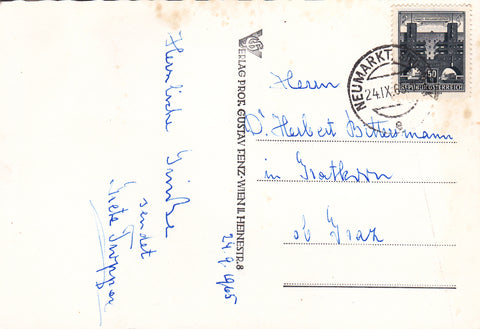 Herzliche Grüße
sendet
Grete
24.9.1965
VERLAG PROF. GUSTAV FENZ-WIEN II. HEINESTR. 8
Herrn
Dr. Herbert Bittersmann
in Gratkorn
ob Graz
NEUMARKT
24.IX.65
e
50
REPUBLIK ÖSTERREICH